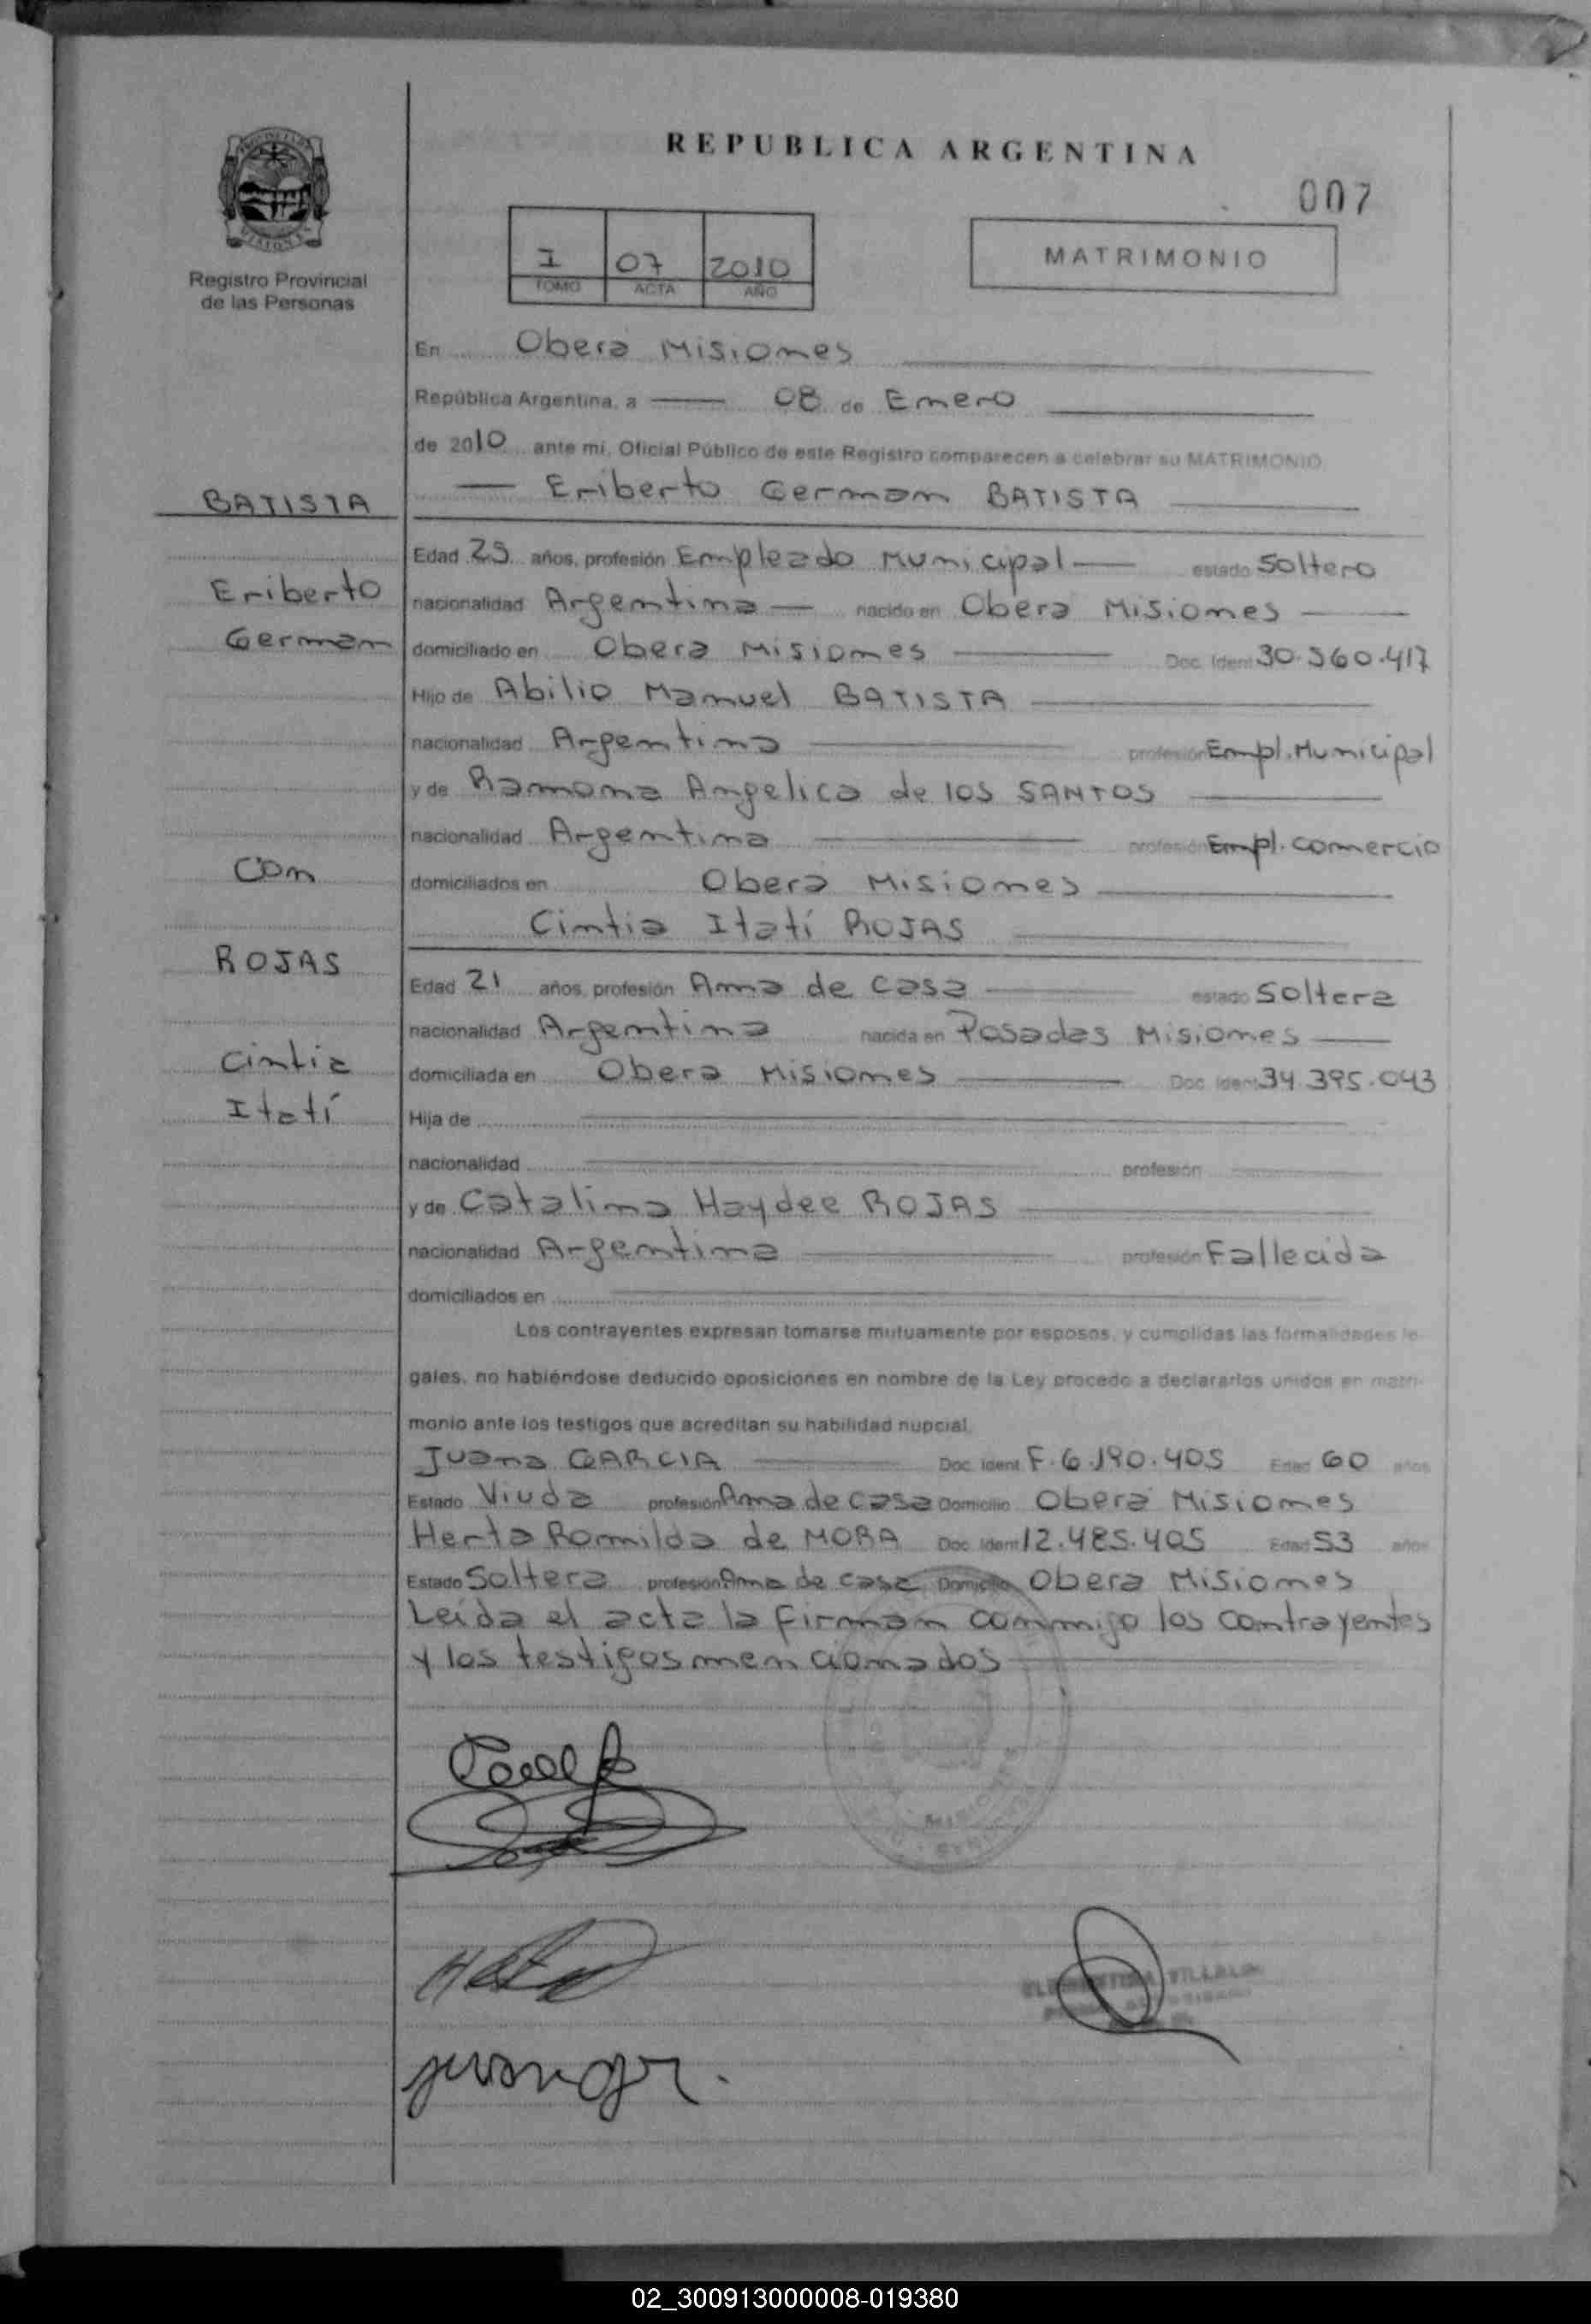 REPUBLICA ARGENTINA
007
Registro Provincial
de las Personas
I 07 2010
TOMO ACTA AÑO
MATRIMONIO
En Obera Misiones
República Argentina, a 08 de Enero
de 2010 ante mi, Oficial Público de este Registro comparecen a celebrar su MATRIMONIO
BATISTA
Eriberto German BATISTA
Edad 25 años, profesión Empleado Municipal estado Soltero
Eriberto
nacionalidad Argentina nacido en Obera Misiones
German
domiciliado en Obera Misiones Doc. Ident 30.560.417
Hijo de Abilio Manuel BATISTA
nacionalidad Argentina profesión Empl. Municipal
y de Ramona Angelica de los SANTOS
nacionalidad Argentina profesión Empl. comercio
Con
domiciliados en Obera Misiones
Cintia Itatí ROJAS
ROJAS
Edad 21 años, profesión Ama de casa estado Soltera
nacionalidad Argentina nacida en Posadas Misiones
Cintia
domiciliada en Obera Misiones Doc. Ident 34.395.043
Itatí
Hija de
nacionalidad profesión
y de Catalina Haydee ROJAS
nacionalidad Argentina profesión Fallecida
domiciliados en
Los contrayentes expresan tomarse mutuamente por esposos, y cumplidas las formalidades le-
gales, no habiéndose deducido oposiciones en nombre de la Ley procedo a declararlos unidos en matri-
monio ante los testigos que acreditan su habilidad nupcial.
Juana GARCIA Doc. Ident F.6.190.405 Edad 60 años
Estado Viuda profesión Ama de casa Domicilio Obera Misiones
Herta Romilda de MORA Doc. Ident 12.485.405 Edad 53 años
Estado Soltera profesión Ama de casa Domicilio Obera Misiones
Leída el acta la firman conmigo los contrayentes
y los testigos mencionados
MISIONES
02_300913000008-019380